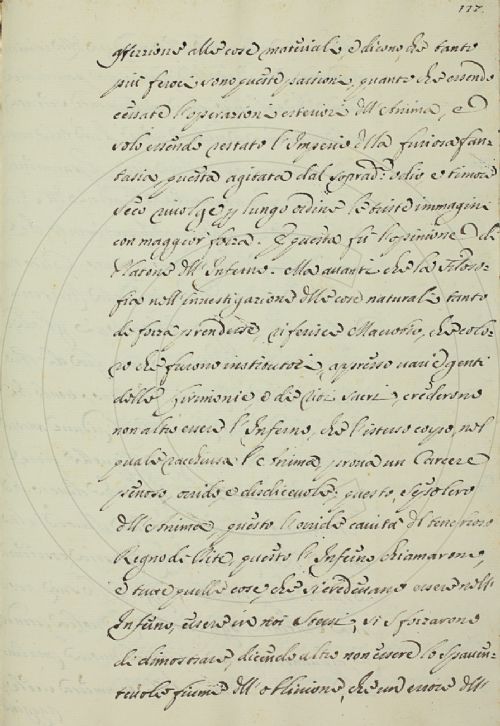 117.
affezzione alle cose materiali, e dicono, che tanto
più feroci sono queste passioni, quanto che essendo
cessate l'operazioni esteriori dell'Anima, e
solo essendo restato l'Imperio della furiosa fan-
tasia, questa agitata dal soprad.º odio e timore
seco rivolge p lungo ordine le triste immagini
con maggior forza. E questa fù l'opinione di
Platone dell'Inferno. Ma avanti che la Filoso-
fia nell'investigazione delle cose naturali tanto
di forza prendesse, riferisce Macrobio, che colo-
ro che furono institutori, appresso varie genti
delle Cirimonie e de Riti sacri, crederono
non altro essere l'Inferno, che l'istesso corpo, nel
quale racchiusa l'Anima, prova un Carcere
penoso, orrido e disdicevole; questo, sepolcro
dell'Anima, questo l'orride cavità del tenebroso
Regno de Dite, questo l'Inferno chiamarono,
e tutte quelle cose, che si credevano essere nell'
Inferno, essere in noi stessi, si sforzarono
di dimostrare, dicendo altro non essere lo spaven-
tevole fiume dell'oblivione, che un errore dell'